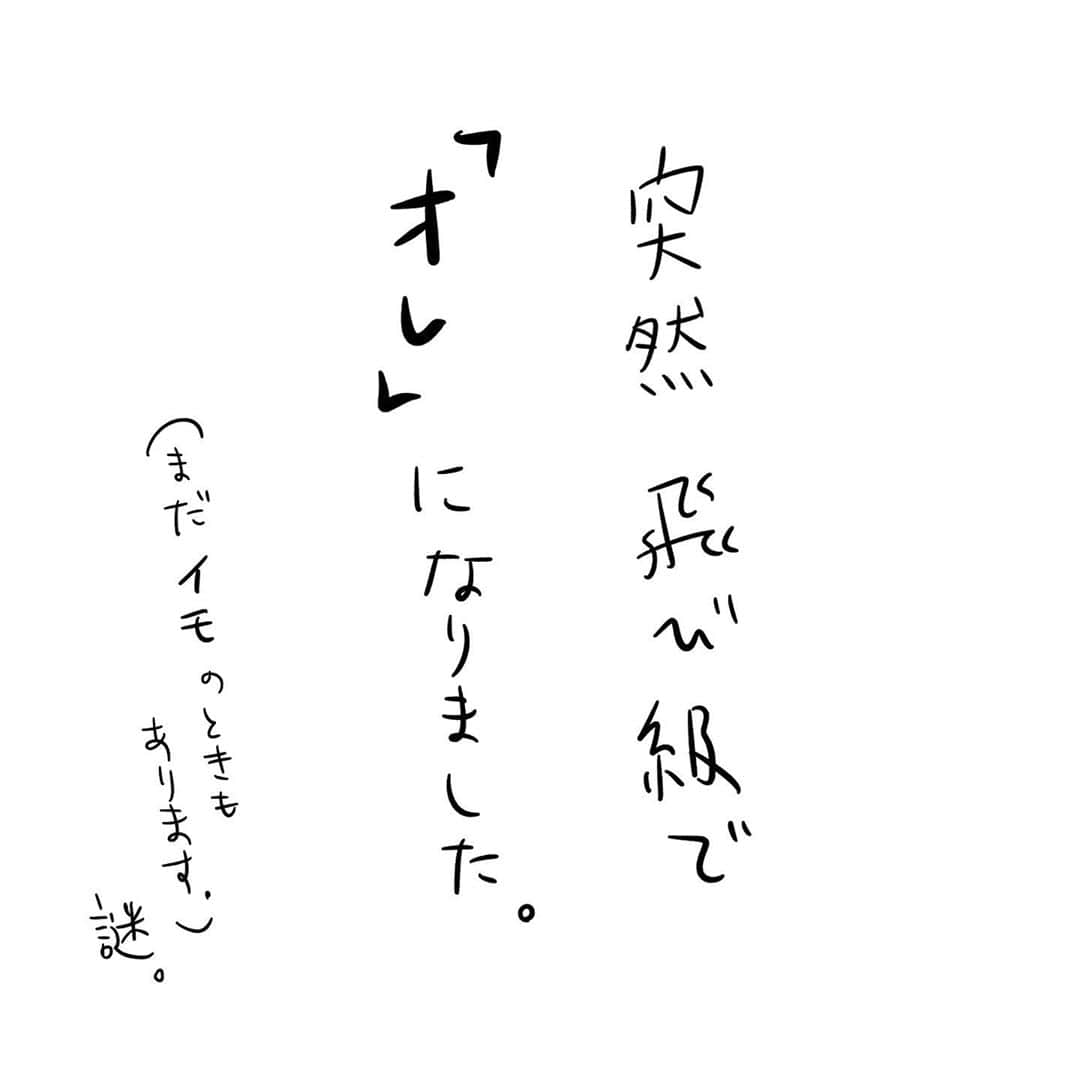 突然 飛び級で
「オレ」になりました。
(まだイモのときも
あります.)
謎。